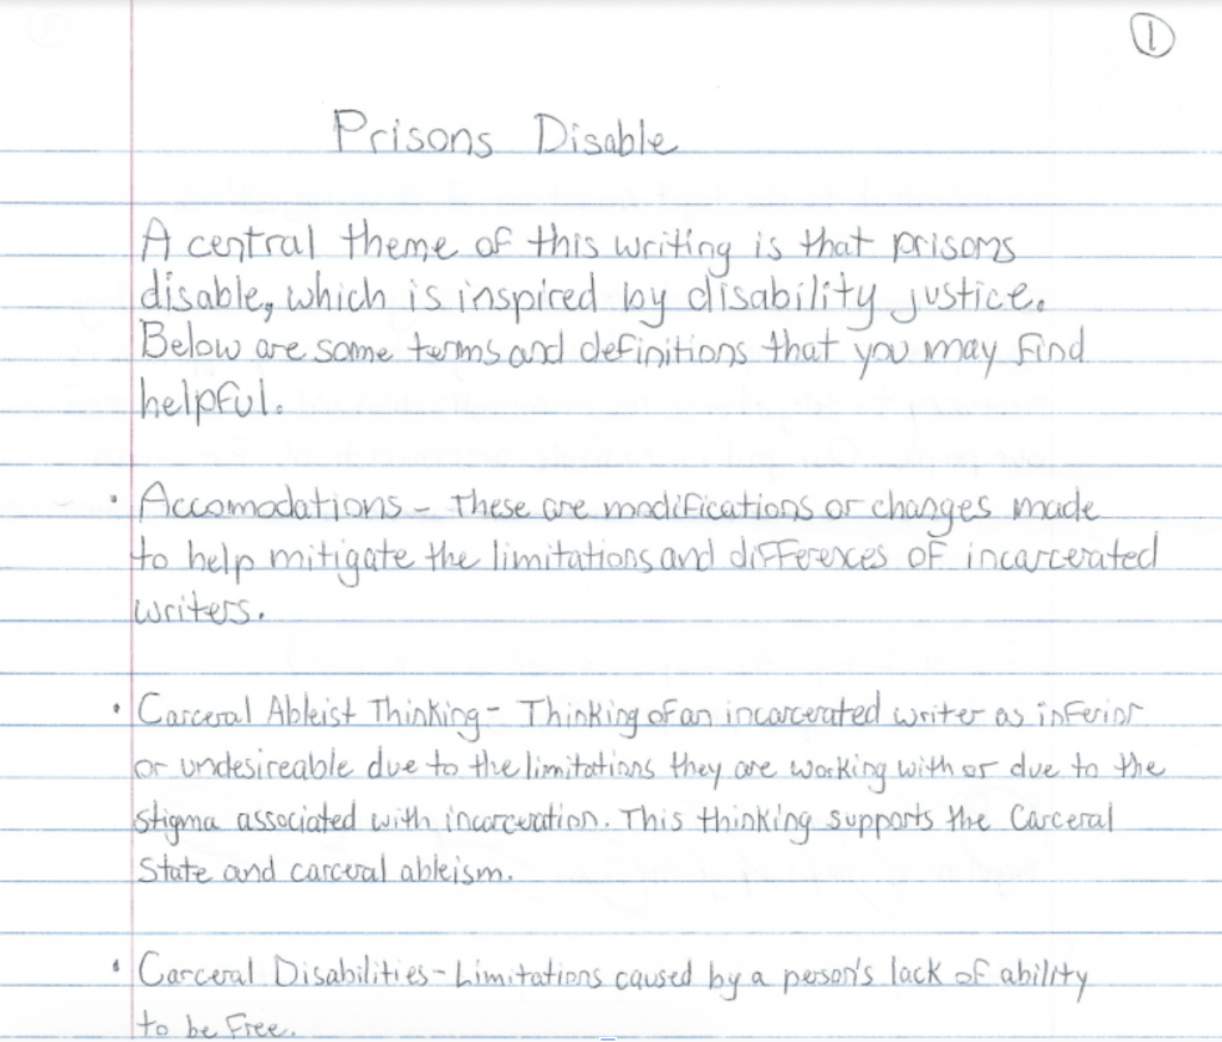 1
Prisons Disable
A central theme of this writing is that prisons
disable, which is inspired by disability justice.
Below are some terms and definitions that you may find
helpful.
· Accomodations - These are modifications or changes made
to help mitigate the limitations and differences of incarcerated
writers.
· Carceral Ableist Thinking - Thinking of an incarcerated writer as inferior
or undesireable due to the limitations they are working with or due to the
stigma associated with incarceration. This thinking supports the Carceral
State and carceral ableism.
· Carceral Disabilities - Limitations caused by a person's lack of ability
to be free.